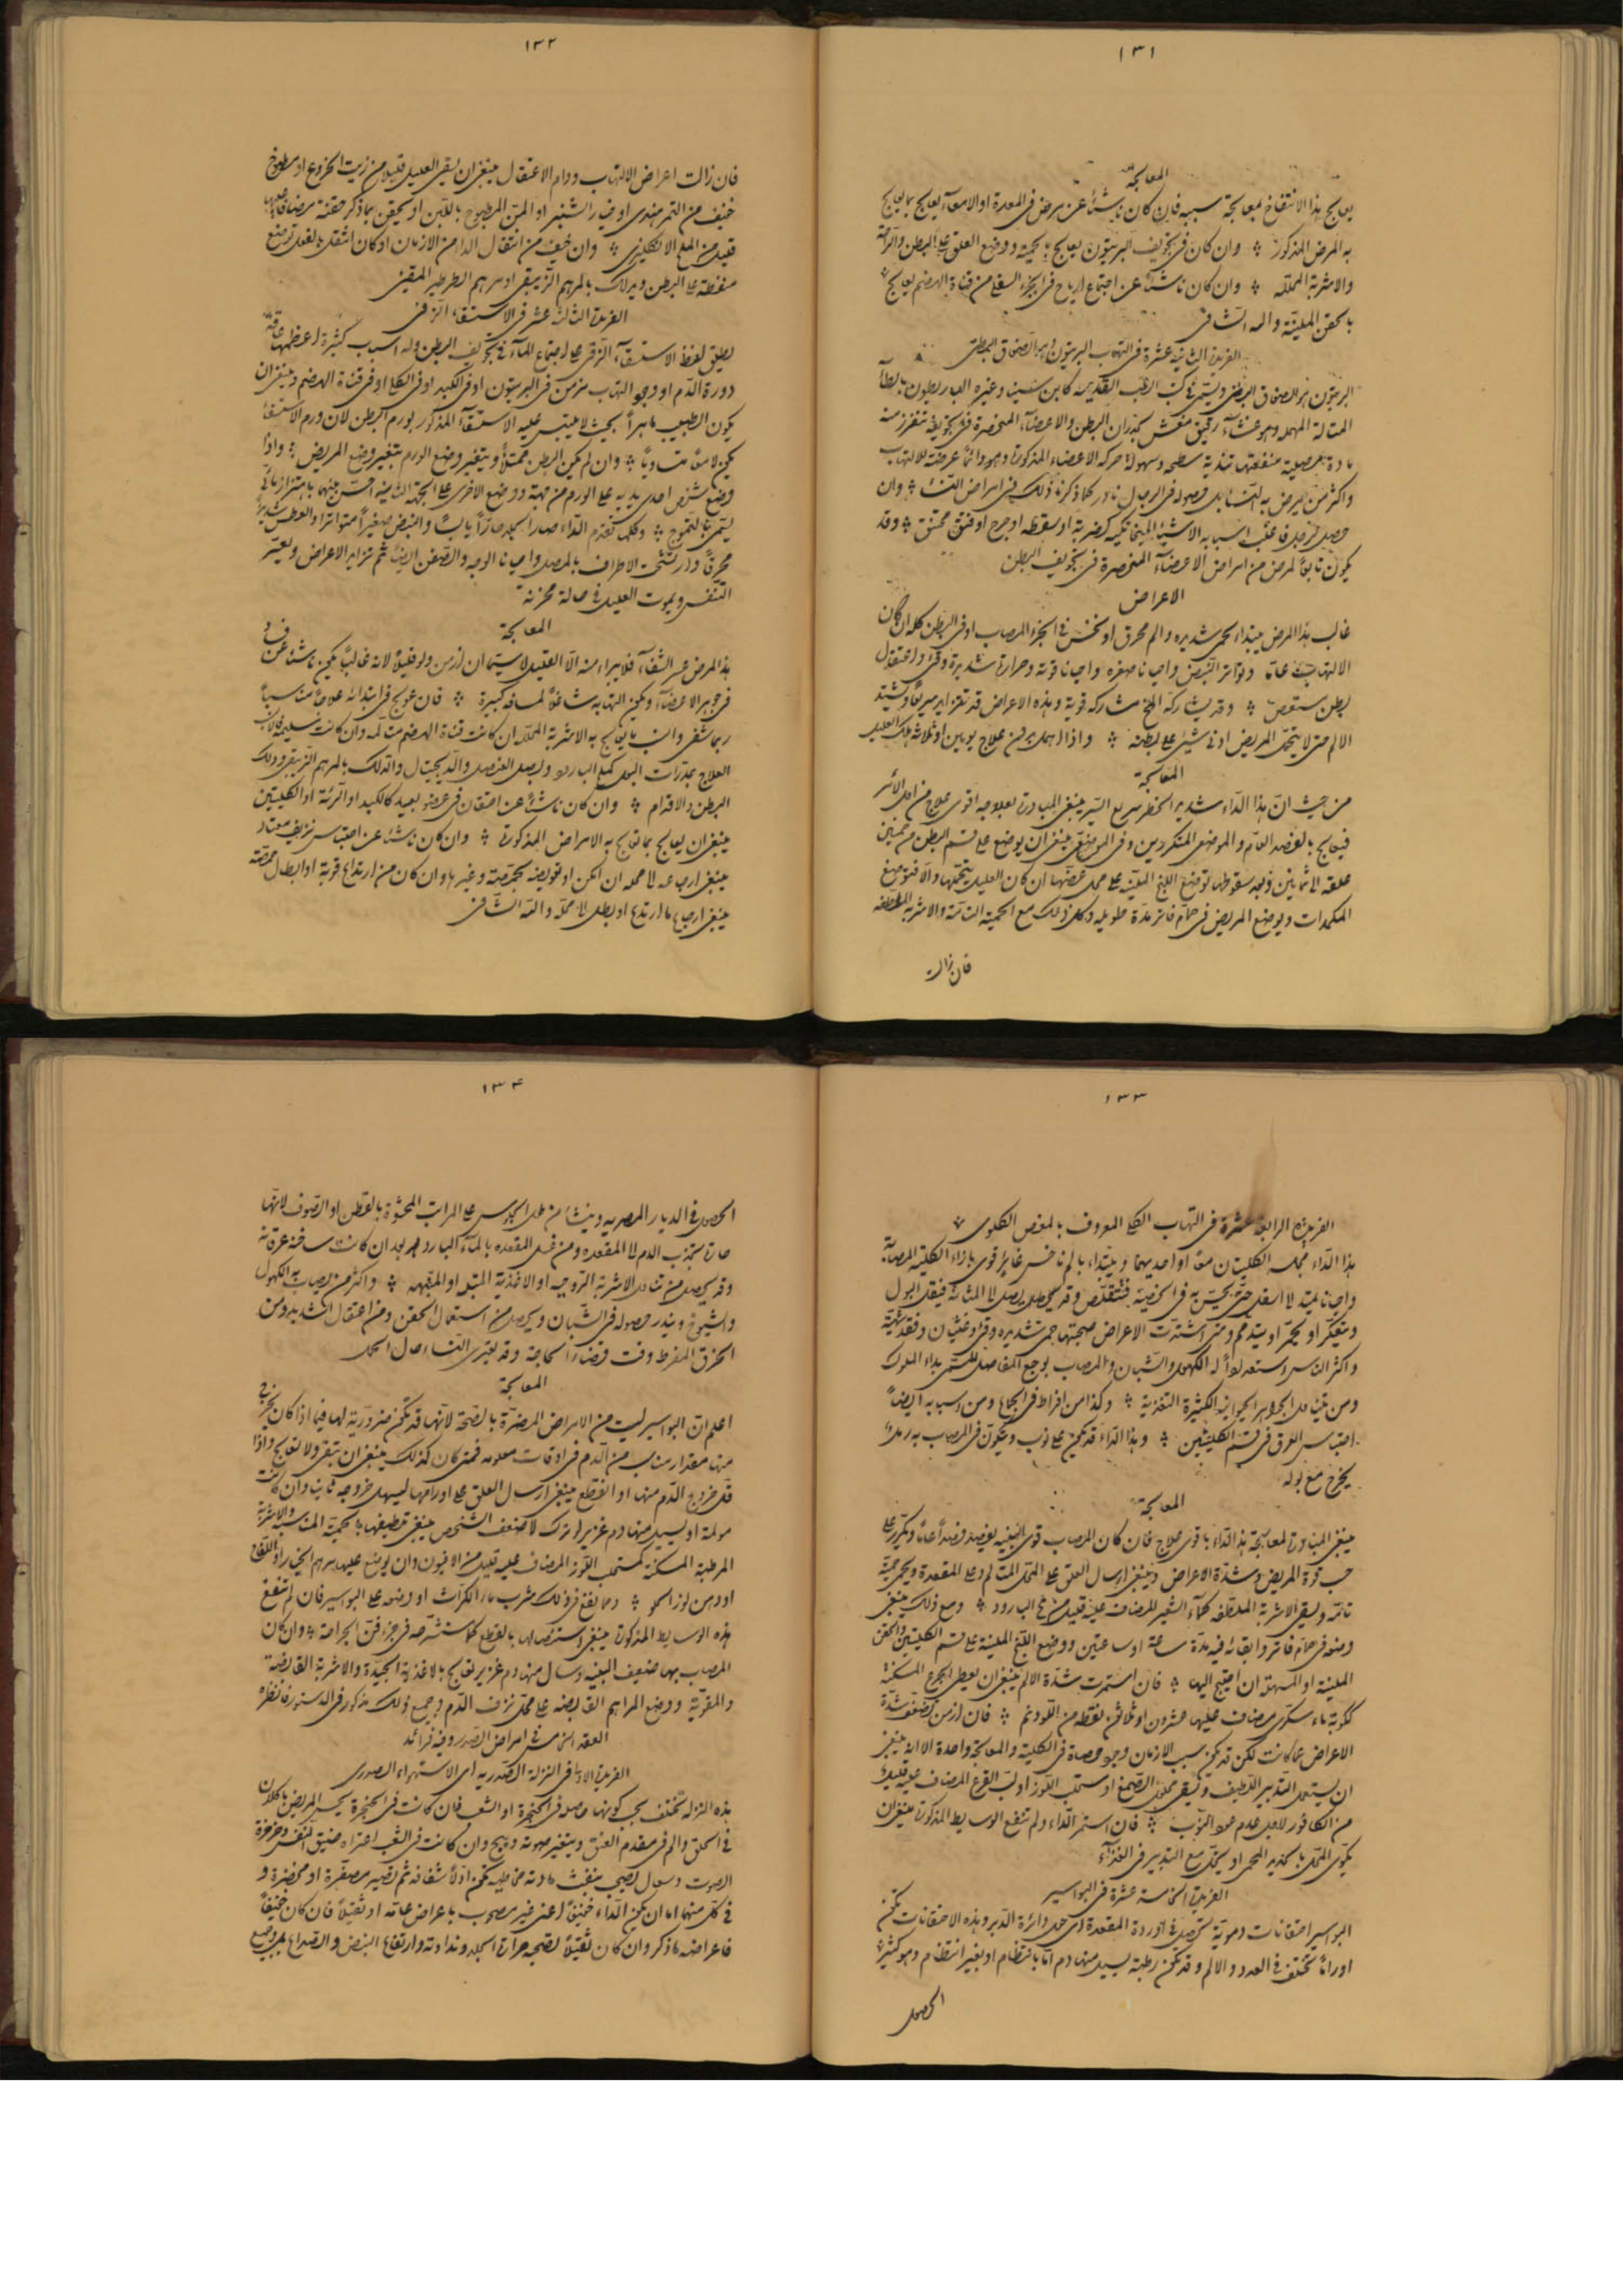 ١٣١
المعالجة
يعالج هذا الانتفاخ بمعالجة سببه فان كان ناشئا عن مرض فى المعدة او الامعاء يعالج بما يعالج
به المرض المذكور وان كان فى تجويف البريتون يعالج بالحمية ووضع العلق على البطن والراحة
والاشربة المحللة وان كان ناشئا عن اجتماع ارياح فى الجزء السفلى من قناة الهضم يعالج
بالحقن الملينة والله الشافى
الفريدة الثانية عشرة فى التهاب البريتون وهو الصفاق البطنى
البريتون هو الصفاق البطنى ويسمى فى كتب الطب القديمة كابن سينا وغيره الباريطون بالطاء
المثالة المهملة وهو غشاء رقيق مغش لجدران البطن والاعضاء المنحصرة فى تجويفه تنفرز منه
مادة مصلية منفعتها تندية سطحه وسهولة حركة الاعضاء المذكورة وهو دائما عرضة للالتهاب
واكثر من يمرض به النساء بل حصوله فى الرجال نادر كما ذكرنا ذلك فى امراض النساء وان
حصل لرجل فاغلب اسبابه الاشياء الميخانيكية كضربة او سقطة او جرح او فتق مختنق وقد
يكون تابعا لمرض من امراض الاعضاء المنحصرة فى تجويف البطن
الاعراض
غالب هذا المرض يبتداء بحمى شديدة والم محرق او نخس فى الجزء المصاب او فى البطن كله ان كان
الالتهاب عاما وتواتر النبض واحيانا صغره واحيانا قوته وحرارة شديدة وقئ واعتقال
بطن مستعص وقد يشاركه المخ مشاركة قوية وهذه الاعراض قد تتزايد سريعا ويشتد
الالم حتى لا يتحمل المريض ادنى شئ على بطنه واذا اهمل من علاج يومين او ثلاثة هلك العليل
المعالجة
من حيث ان هذا الداء شديد الخطر سريع السير ينبغى المبادرة بعلاجه اقوى علاج من اول الامر
فيعالج بالفصد العام والموضعى المتكررين وفى الموضعى ينبغى ان يوضع على قسم البطن من خمسين
علقة الى ثمانين وبعد سقوطها توضع اللبخ الملينة على محل عضتها ان كان العليل يتحملها والا فتوضع
المكمدات ويوضع المريض فى حمام فاتر مدة طويلة وكل ذلك مع الحمية التامة والاشربة الملطفة
فان زالت
١٣٢
فان زالت اعراض الالتهاب ودام الاعتقال ينبغى ان يسقى العليل قليلا من زيت الخروع او مطبوخ
خفيف من التمر هندى او خيار الشنبر او المن المطبوخ باللبن او يحقن بما ذكر حقنة مضافا عليها
قليل من الملح الانكليزى وان خيف من انتقال الداء من الازمان او كان انتقل بالفعل توضع
منفطة على البطن ويدلك بالمرهم الزيبقى او مرهم الطرطير المقيئ
الفريدة الثالثة عشر فى الاستسقاء الزقى
يطلق لفظ الاستسقاء الزقى على اجتماع الماء فى تجويف البطن وله اسباب كثيرة اعظمها اعاقة
دورة الدم او وجود التهاب مزمن فى البريتون او فى الكبد او فى الكلى او فى قناة الهضم وينبغى ان
يكون الطبيب ماهرا بحيث لا يلتبس عليه الاستسقاء المذكور بورم البطن لان ورم الاستسقاء
يكون لامعا متساويا وان لم يكن البطن ممتلئا ويتغير وضع الورم بتغير وضع المريض واذا
وضع شخص احدى يديه على الورم من جهة ووضع الاخرى على الجهة الثانية احس بينهما باهتزاز مائى
يسمى بالتموج وكلما تقدم الداء صار الجلد حارا يابسا والنبض صغيرا متواترا والعطش شديدا
محرقا وارتشحت الاطراف بالمصل واحيانا الوجه والصفن ايضا ثم تتزايد الاعراض ويعسر
التنفس ويموت العليل فى حالة محزنة
المعالجة
هذا المرض عسر الشفاء فلا يبراء منه الا القليل لا سيما ان ازمن ولو قليلا لانه غالبا يكون ناشئا عن فساد
فى جوهر الاعضاء ويكون التهابه شاغلا لمسافة كبيرة فان عولج فى ابتدائه علاجا مناسبا
ربما شفى وانسب ما يعالج به الاشربة المحللة ان كانت قناة الهضم متألمة وان كانت سليمة فالانسب
العلاج بمدرات البول كملح البارود وبصل العنصل والديجيتال والدلك بالمرهم الزيبقى ودلك
البطن والاقدام وان كان ناشئا عن احتقان فى عضو بعيد كالكبد او الرئة او الكليتين
ينبغى ان يعالج بما تعالج به الامراض المذكورة وان كان ناشئا عن احتباس نزيف معتاد
ينبغى ارجاعه الى محله ان امكن او تعويضه بحجامة وغيرها وان كان من ارتداع قوبة او ابطال حمصة
ينبغى ارجاع ما ارتدع او بطل الى محله والله الشافى
١٣٣
الفريدة الرابعة عشرة فى التهاب الكلى المعروف بالمغص الكلوى
هذا الداء مجلسه الكليتان معا او احديهما ويبتداء بالم ناخس غائر قوى بازاء الكلية المصابة
واحيانا يمتد الى اسفل حتى يحس به فى الخصية فتتقلص وقد يحصل يصل الى المثانة فيقل البول
ويتعكر او يحمر او يتدمم ومتى اشتدت الاعراض صحبتها حمى شديدة وقئ وغثيان وفقد شهية
واكثر الناس استعدادا له الكهول والشبان والمصاب بوجع المفاصل المسمى بداء الملوك
ومن يتناول الجواهر الحيوانية الكثيرة التغذية وكذا من افراط فى الجماع ومن اسبابه ايضا
احتباس العرق فى قسم الكليتين وهذا الداء قد يكون على نوب ويتكون فى المصاب به رمل
يخرج مع بوله
المعالجة
ينبغى المبادرة لمعالجة هذا الداء باقوى علاج فان كان المصاب قوى البنية يفصد فصدا عاما ويكرر على
حسب قوة المريض وشدة الاعراض وينبغى ارسال العلق على المحل المتالم وعلى المقعدة ويحمى حمية
تامة ويسقى الاشربة الملطفة كماء الشعير المضاف عليه قليل من ملح البارود ومع ذلك ينبغى
وضعه فى حمام فاتر وابقائه فيه مدة ساعة او ساعتين ووضع اللبخ الملينة على قسم الكليتين والحقن
الملينة او المسهلة ان احتيج اليها فان استمرت شدة الالم ينبغى ان يعطى الجرع المسكنة
ككوبة ماء سكرى مضاف عليها عشرون او ثلاثون نقطة من اللودنم فان ازمن تضعف شدة
الاعراض عما كانت لكن قد يكون سبب الازمان وجود حصاة فى الكلية والمعالجة واحدة الا انه ينبغى
ان يستعمل التدبير اللطيف ويسقى محلول الصمغ او مستحلب اللوز او لب القرع المضاف عليه قليل
من الكافور لاجل عدم عود النوب فان استمر الداء ولم تنفع الوسايط المذكورة ينبغى ان
يكوى المحل بالحديد المحمى او يخل مع التدبير فى الغذاء
الفريدة الخامسة عشرة فى البواسير
البواسير احتقانات دموية تحصل فى اوردة المقعدة اى حول دائرة الدبر وهذه الاحتقانات تكون
اوراما تختلف فى العدد والالم وقد تكون رطبة يسيل منها دم اما بانتظام او بغير انتظام وهو كثير
الحصول
١٣٤
الحصول فى الديار المصرية وينشا من طول الجلوس على المراتب المحشوة بالقطن او الصوف لانها
حارة تجذب الدم الى المقعدة ومن غسل المقعدة بالماء البارد بعد ان كانت ساخنة عرقانة
وقد يحصل من تناول الاشربة الروحية او الاغذية المتبلة او المنبهة واكثر من يصاب به الكهول
والشيوخ ويندر حصوله فى الشبان ويحصل من استعمال الحقن ومن اعتقال الشديد ومن
الحزق المفرط وقت قضاء الحاجة وقد يعترى النساء حال الحمل
المعالجة
اعلم ان البواسير ليست من الامراض المضرة بالصحة لانها قد تكون ضرورية لها فيما اذا كان يخرج
منها مقدار مناسب من الدم فى اوقات معلومة فمتى كان كذلك ينبغى ان تبقى ولا تعالج واذا
قل خروج الدم منها او انقطع ينبغى ارسال العلق على اورامها ليسهل خروجه ثانيا وان كانت
مولمة او يسيل منها دم غزير او ترك لاضعف الشخص ينبغى تلطيفها بالحمية المناسبة والاشربة
المرطبة المسكنة كمستحلب اللوز المضاف عليه قليل من الافيون وان يوضع عليها مرهم الخيار او اللفاح
او دهن لوز الحلو ومما ينفع فى ذلك شرب ماء الكراث او وضعه على البواسير فان لم تنفع
هذه الوسايط المذكورة ينبغى استئصالها بالقطع كما ستشرحه فى جزء فن الجراحة وان كان
المصاب بها ضعيف البنية وسال منها دم غزير يعالج بالاغذية الجيدة والاشربة القابضة
والمقوية ووضع المراهم القابضة على محل نزف الدم وجميع ذلك مذكور فى الدستور فانظره
العقد الخامس فى امراض الصدر وفيه فرائد
الفريدة الاولى فى النزلة الصدرية اى الاستهواء الصدرى
هذه النزلة تختلف بحسب كونها حاصلة فى الحنجرة او الشعب فان كانت فى الحنجرة يحس المريض باكلان
فى الحلق والم فى مقدم العنق ويتغير صوته ويبح وان كانت فى الشعب اعتراه ضيق النفس وخرخرة
الصوت وسعال يصحبه نفث مادة مخاطية تكون اولا شفافة ثم تصير مصفرة او مخضرة و
فى كل منهما اما ان يكون الداء خفيفا اعنى غير مصحوب باعراض عامة او ثقيلا فان كان خفيفا
فاعراضه ما ذكر وان كان ثقيلا تصحبه حرارة الجلد ونداوته وارتفاع النبض والصداع